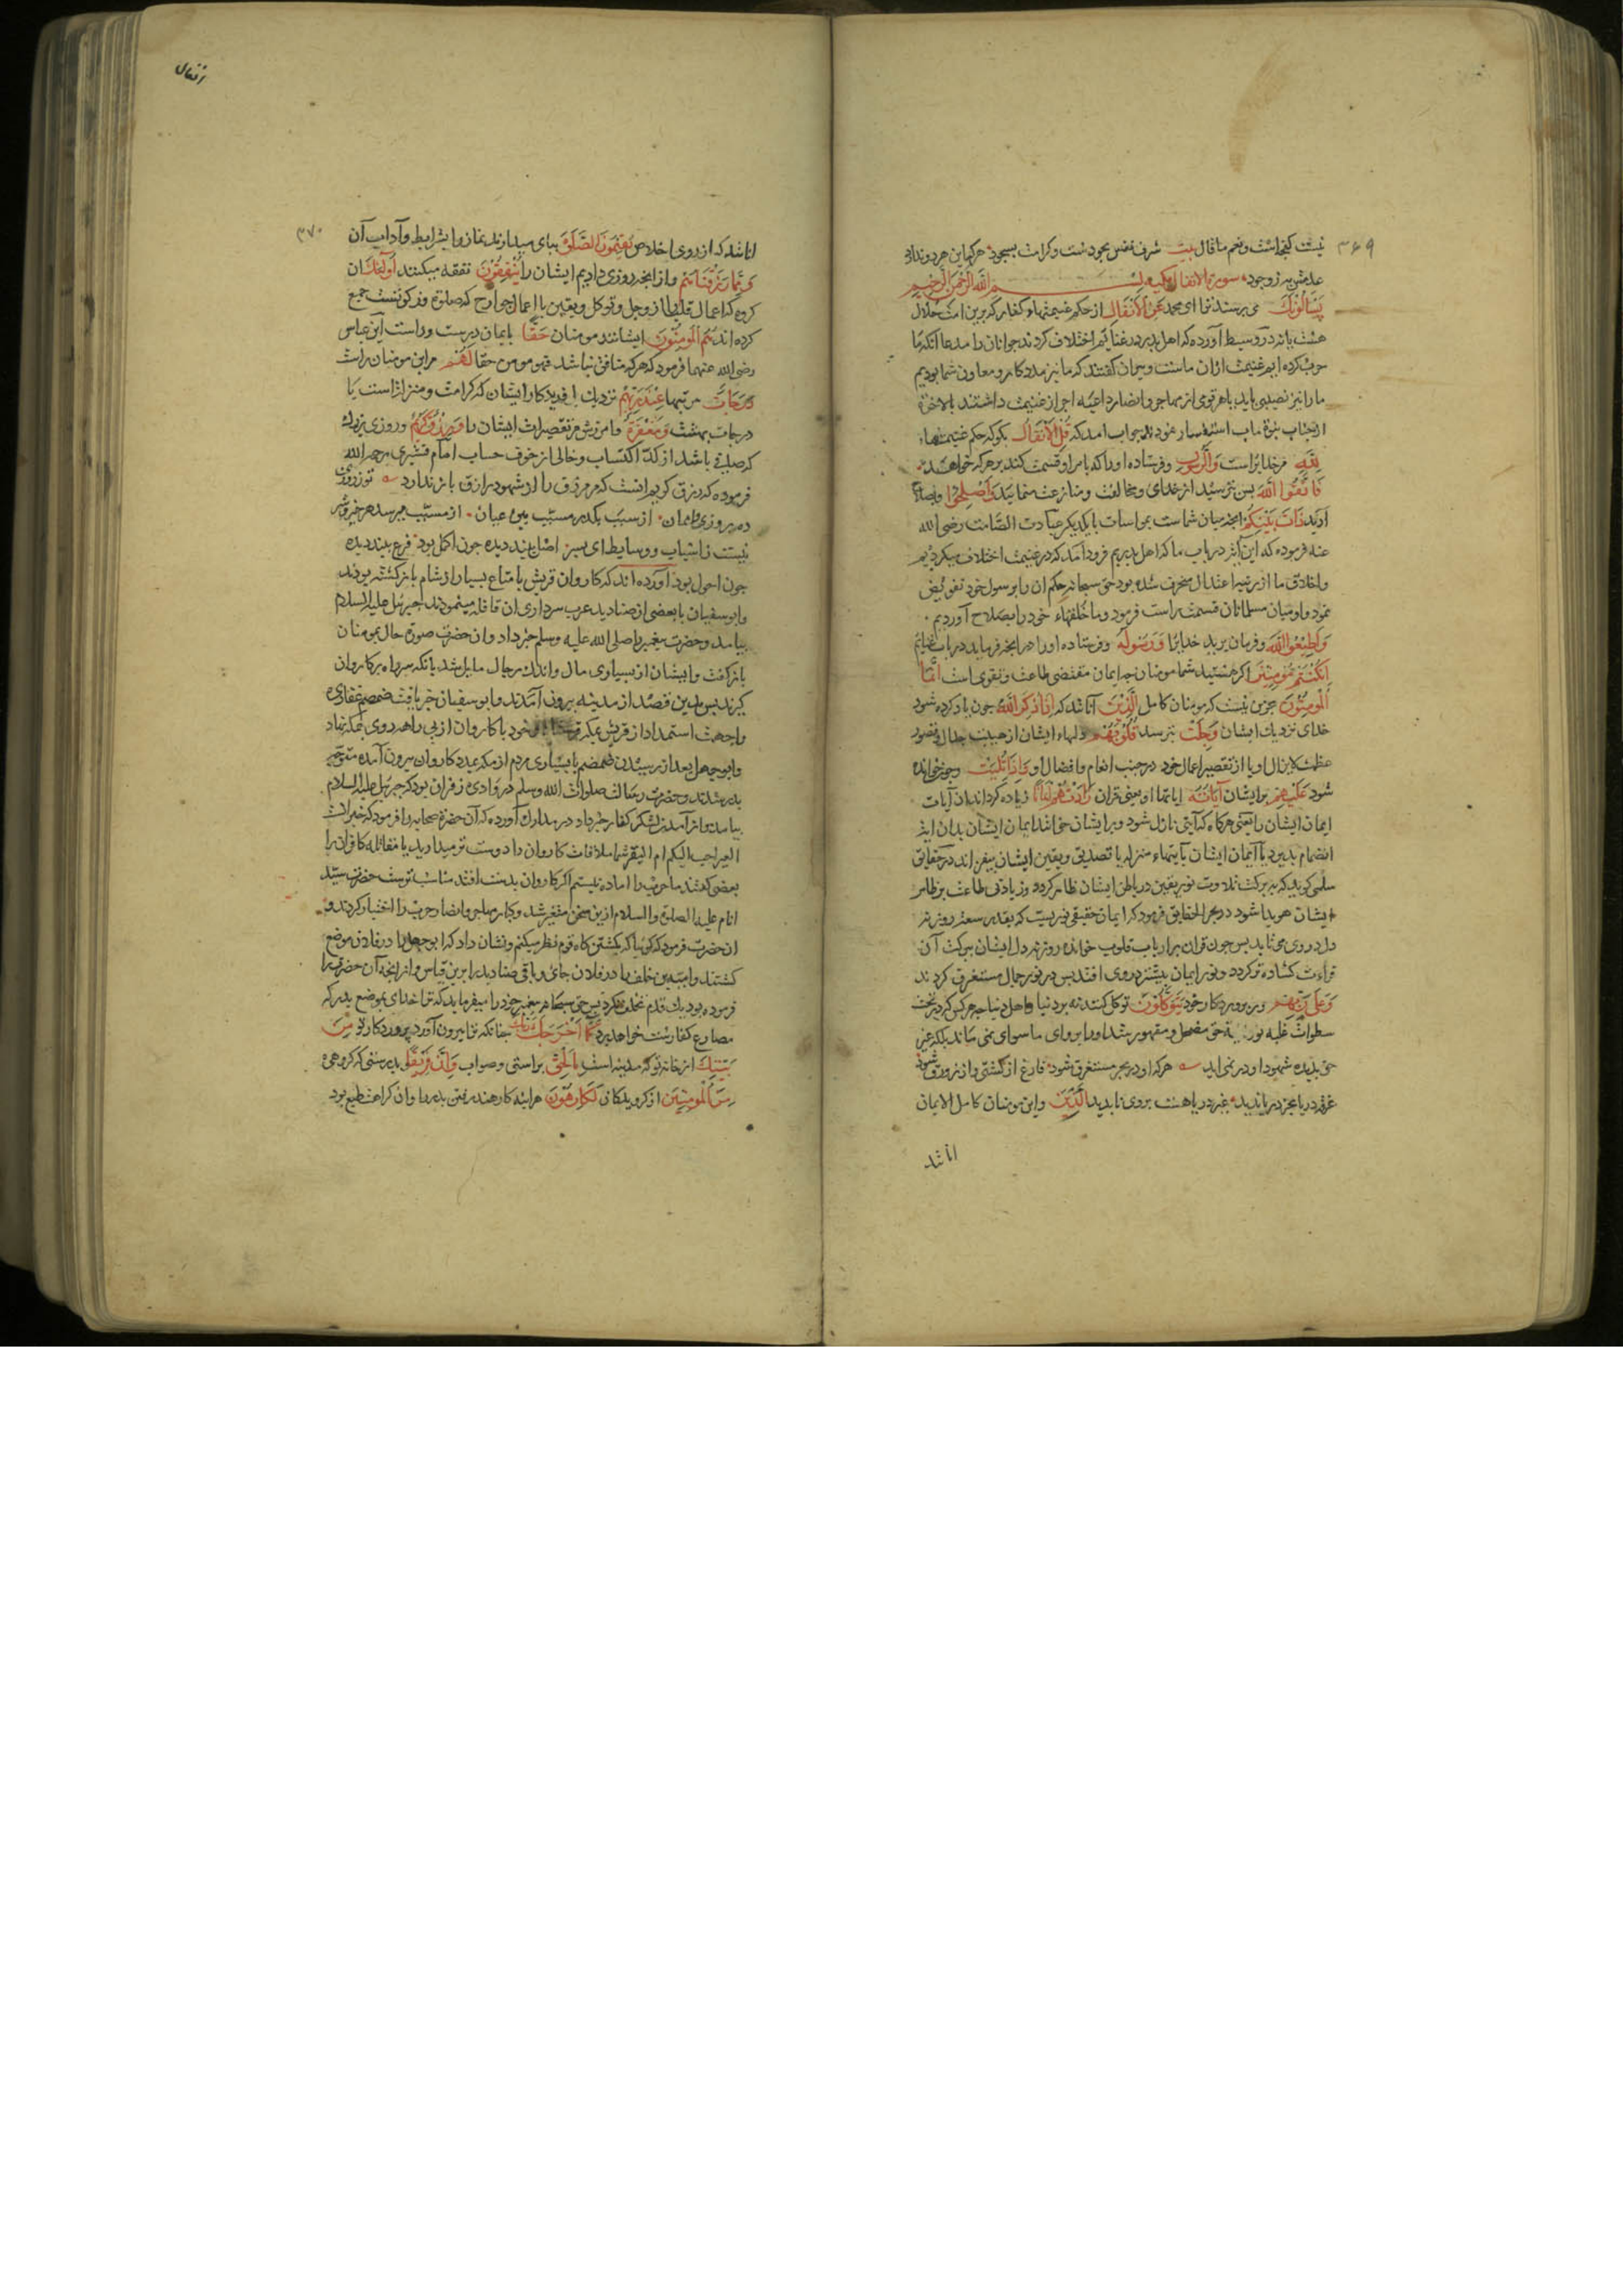 ۳۶۹
نیست کجاست و نعم ما قال بیت شرف نفس بجودست و کرامت بسجود هر که این هر دو ندارد
عدمش به ز وجود سورة الانفال بسم الله الرحمن الرحیم
یَسْأَلُونَکَ می پرسند ترا ای محمد عَنِ الْأَنْفَالِ از حکم غنیمتهاء کفار که برین امت حلال
هست یا نه در وسیط آورده که اهل بدر در غنایم اختلاف کردند جوانان را مدعا انکه ما
حرب کرده ایم غنیمت ازان ماست و پیران کفتند که ما نیز مددکار و معاون شما بودیم
ما را نیز نصیبی باید یا هر قومی از مهاجر و انصار داعیه اخذ غنیمت داشتند بالاخرة
از جناب نبوة ماب استفسار نمودند جواب امد که قُلِ الْأَنْفَالُ بکو که حکم غنیمتهاء
لِلَّهِ مر خدایراست وَالرَّسُولِ و فرستاده او را که بامر او قسمت کند بر هر که خواهد
فَاتَّقُوا اللَّهَ پس بترسید از خدای و مخالفت و منازعت منمائید وَأَصْلِحُوا و بصلاح
ارید ذَاتَ بَیْنِکُمْ انچه میان شماست بمواسات با یکدیکر عبادت الصامت رضی الله
عنه فرموده که این آیة در باب ما که اهل بدریم فرود امد که در غنیمت اختلاف میکردیم
و اخلاق ما از مرتبه اعتدال منحرف شده بود حق سبحانه حکم ان را برسول خود تفویض
نمود و او میان مسلمانان قسمت براست فرمود و ما خلقهاء خود را بصلاح آوردیم
وَأَطِیعُوا اللَّهَ و فرمان برید خدایرا وَرَسُولَهُ و فرستاده او را در انچه فرماید در باب غنایم
إِنْ کُنْتُمْ مُؤْمِنِینَ اکر هستید شما مومنان چه ایمان مقتضی طاعت و تقوی است إِنَّمَا
الْمُؤْمِنُونَ جزین نیست که مومنان کامل الَّذِینَ آنانند که إِذَا ذُکِرَ اللَّهُ چون یاد کرده شود
خدای نزدیک ایشان وَجِلَتْ بترسد قُلُوبُهُمْ دلهاء ایشان از هیبت جلال و تصور
عظمت لایزال او یا از تقصیر اعمال خود در جنب انعام و افضال او وَإِذَا تُلِیَتْ و چون خوانده
شود عَلَیْهِمْ بر ایشان آیَاتُهُ ایاتهاء او یعنی قران زَادَتْهُمْ إِیمَانًا زیاده کرداند ان آیات
ایمان ایشان را یعنی هرکاه که آیتی نازل شود و بر ایشان خوانند ایمان ایشان بدان ایة
انضمام پذیرد با ایمان ایشان بآیتهاء منزله یا تصدیق و یقین ایشان بیفزاید در حقایق
سلمی کوید که ببرکت تلاوت نور یقین در باطن ایشان ظاهر کردد و زیادتی طاعت بر ظاهر
ایشان هویدا شود در بحر الحقایق فرمود که ایمان حقیقی نوریست که بقدر سعه روزنه
دل در وی می تابد پس چون قران بر ارباب قلوب خوانده روزنه دل ایشان ببرکت آن
قراءت کشاده تر کردد و نور ایمان بیشتر در وی افتد پس در نور جمال مستغرق کردند
وَعَلَی رَبِّهِمْ و بر پروردکار خود یَتَوَکَّلُونَ توکل کنند نه بر دنیا و اهل دنیا چه هرکس که در تحت
سطوات غلبه نور حق مضمحل و مقهور شد او را پروای ما سوای نمی ماند بلکه غیر
حق بدیده شهود او در نمی اید هر که او در بحر مستغرق شود فارغ از کشتی و از زورق شود
غرقه دریا بجز دریا ندید غیر دریا هست بر وی ناپدید الَّذِینَ و این مومنان کامل الایمان
انانند
انفال
۳۷۰
انانند که از روی اخلاص یُقِیمُونَ الصَّلَاةَ بپای میدارند نماز را بشرایط و آداب آن
وَمِمَّا رَزَقْنَاهُمْ و از انچه روزی دادیم ایشان را یُنْفِقُونَ نفقه میکنند أُولَئِکَ ان
کروه که اعمال قلبی را از وجل و توکل و یقین با اعمال جوارح که صلوة و زکوتست جمع
کرده اند هُمُ الْمُؤْمِنُونَ ایشانند مومنان حَقًّا بایمان درست و راست ابن عباس
رضی الله عنهما فرمود که هر که منافق نباشد فهو مومن حقا لَهُمْ مر این مومنان راست
دَرَجَاتٌ مرتبها عِنْدَ رَبِّهِمْ نزدیک افریدکار ایشان که کرامت و منزلتاست یا
درجات بهشت وَمَغْفِرَةٌ و امرزش مر تقصیرات ایشان را وَرِزْقٌ کَرِیمٌ و روزی بزرک
که صافی باشد از کد اکتساب و خالی از خوف حساب امام قشیری رحمه الله
فرموده که رزق کریم انست که مرزوق را از شهود رازق باز ندارد تو ز روزی
ده بروزی وا ممان از سبب بکذر مسبب بین عیان از مسبب میرسد هر خیر و شر
نیست ز اسباب و وسایط ای پسر اصل بیند دیده چون اکمل بود فرع بیند دیده
چون احول بود آورده اند که کاروان قریش با متاع بسیار از شام بازکشته بودند
و ابو سفیان با بعضی از صنادید عرب سرداری ان قافله مینمودند جبرئیل علیه السلام
بیامد و حضرت پیغمبر را صلی الله علیه وسلم خبر داد و ان حضرت صورة حال بمومنان
باز کفت و ایشان از بسیاری مال و اندک رجال مایل شد بانکه سر راه بر کاروان
کیرند پس بدین قصد از مدینه بیرون آمدند و ابو سفیان خبر یافت ضمضم غفاری
را جهت استمداد از قریش بمکه و خود با کاروان از بی راهه روی بمکه نهاد
و ابو جهل بعد از رسیدن ضمضم با بسیاری مردم از مکه بمدد کاروان بیرون آمده متوجه
بدر شدند و حضرت رسالت صلوات الله وسلم در وادی زفران بود که جبرئیل علیه السلام
بیامد و از آمدن لشکر کفار خبر داد در مدارک آورده که آن حضرة صحابه را فرمود که
العیر احب الیکم ام النفیر شما ملاقات کاروان را دوست تر میدارید یا مقاتله کافران را
بعضی کفتند ما حرب را اماده نیستیم اکر کاروان بدست افتد مناسب ترست حضرت سید
انام علیه الصلوة والسلام ازین سخن متغیر شد و کبار مهاجر و انصار حرب را اختیار کردند و
ان حضرت فرمود که کوئیا که بکشتن کاه قوم نظر میکنم و نشان داد که ابو جهل را در فلان موضع
کشتند و امیة بن خلف را در فلان جای و باقی صنادید را برین قیاس و از انچه آن حضرت
فرموده بود یک قدم تخلف نکرد پس حق سبحانه پیغمبر خود را میفرماید که ترا خدای بموضع بدر که
مصارع کفارست خواهد برد کَمَا أَخْرَجَکَ رَبُّکَ چنانکه ترا بیرون آورد پروردکار تو مِنْ
بَیْتِکَ از خانه تو که مدینه است بِالْحَقِّ براستی و صواب وَإِنَّ فَرِیقًا بدرستی که کروهی
مِنَ الْمُؤْمِنِینَ از کرویدکان لَکَارِهُونَ هراینه کارهند رفتن بدر را و ان کراهت طبع بود